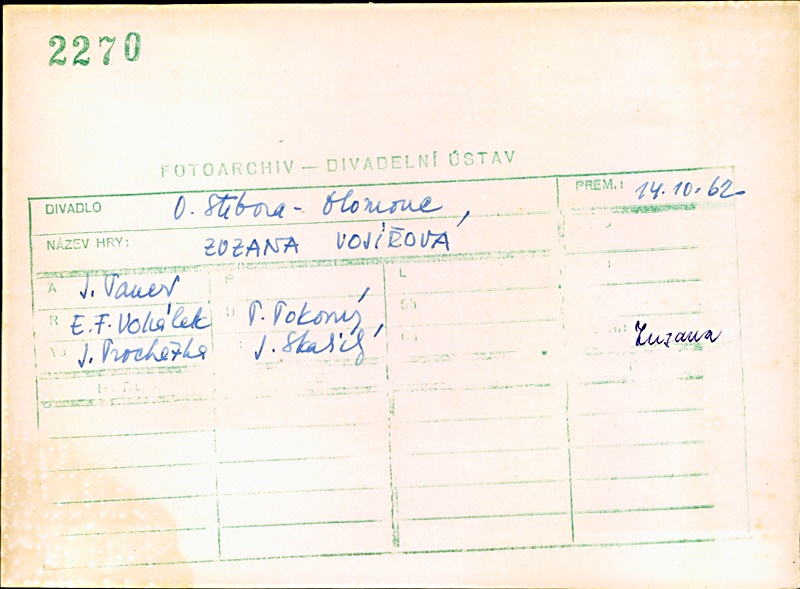 2270
FOTOARCHIV — DIVADELNÍ ÚSTAV
DIVADLO O. Stibora - Olomouc, PREM.: 14.10.62
NÁZEV HRY: ZUZANA VOJÍŘOVÁ
A J. Pauer P L
R E. F. Vokálek U P. Pokorný
J. Procházka J. Skalický Zuzana